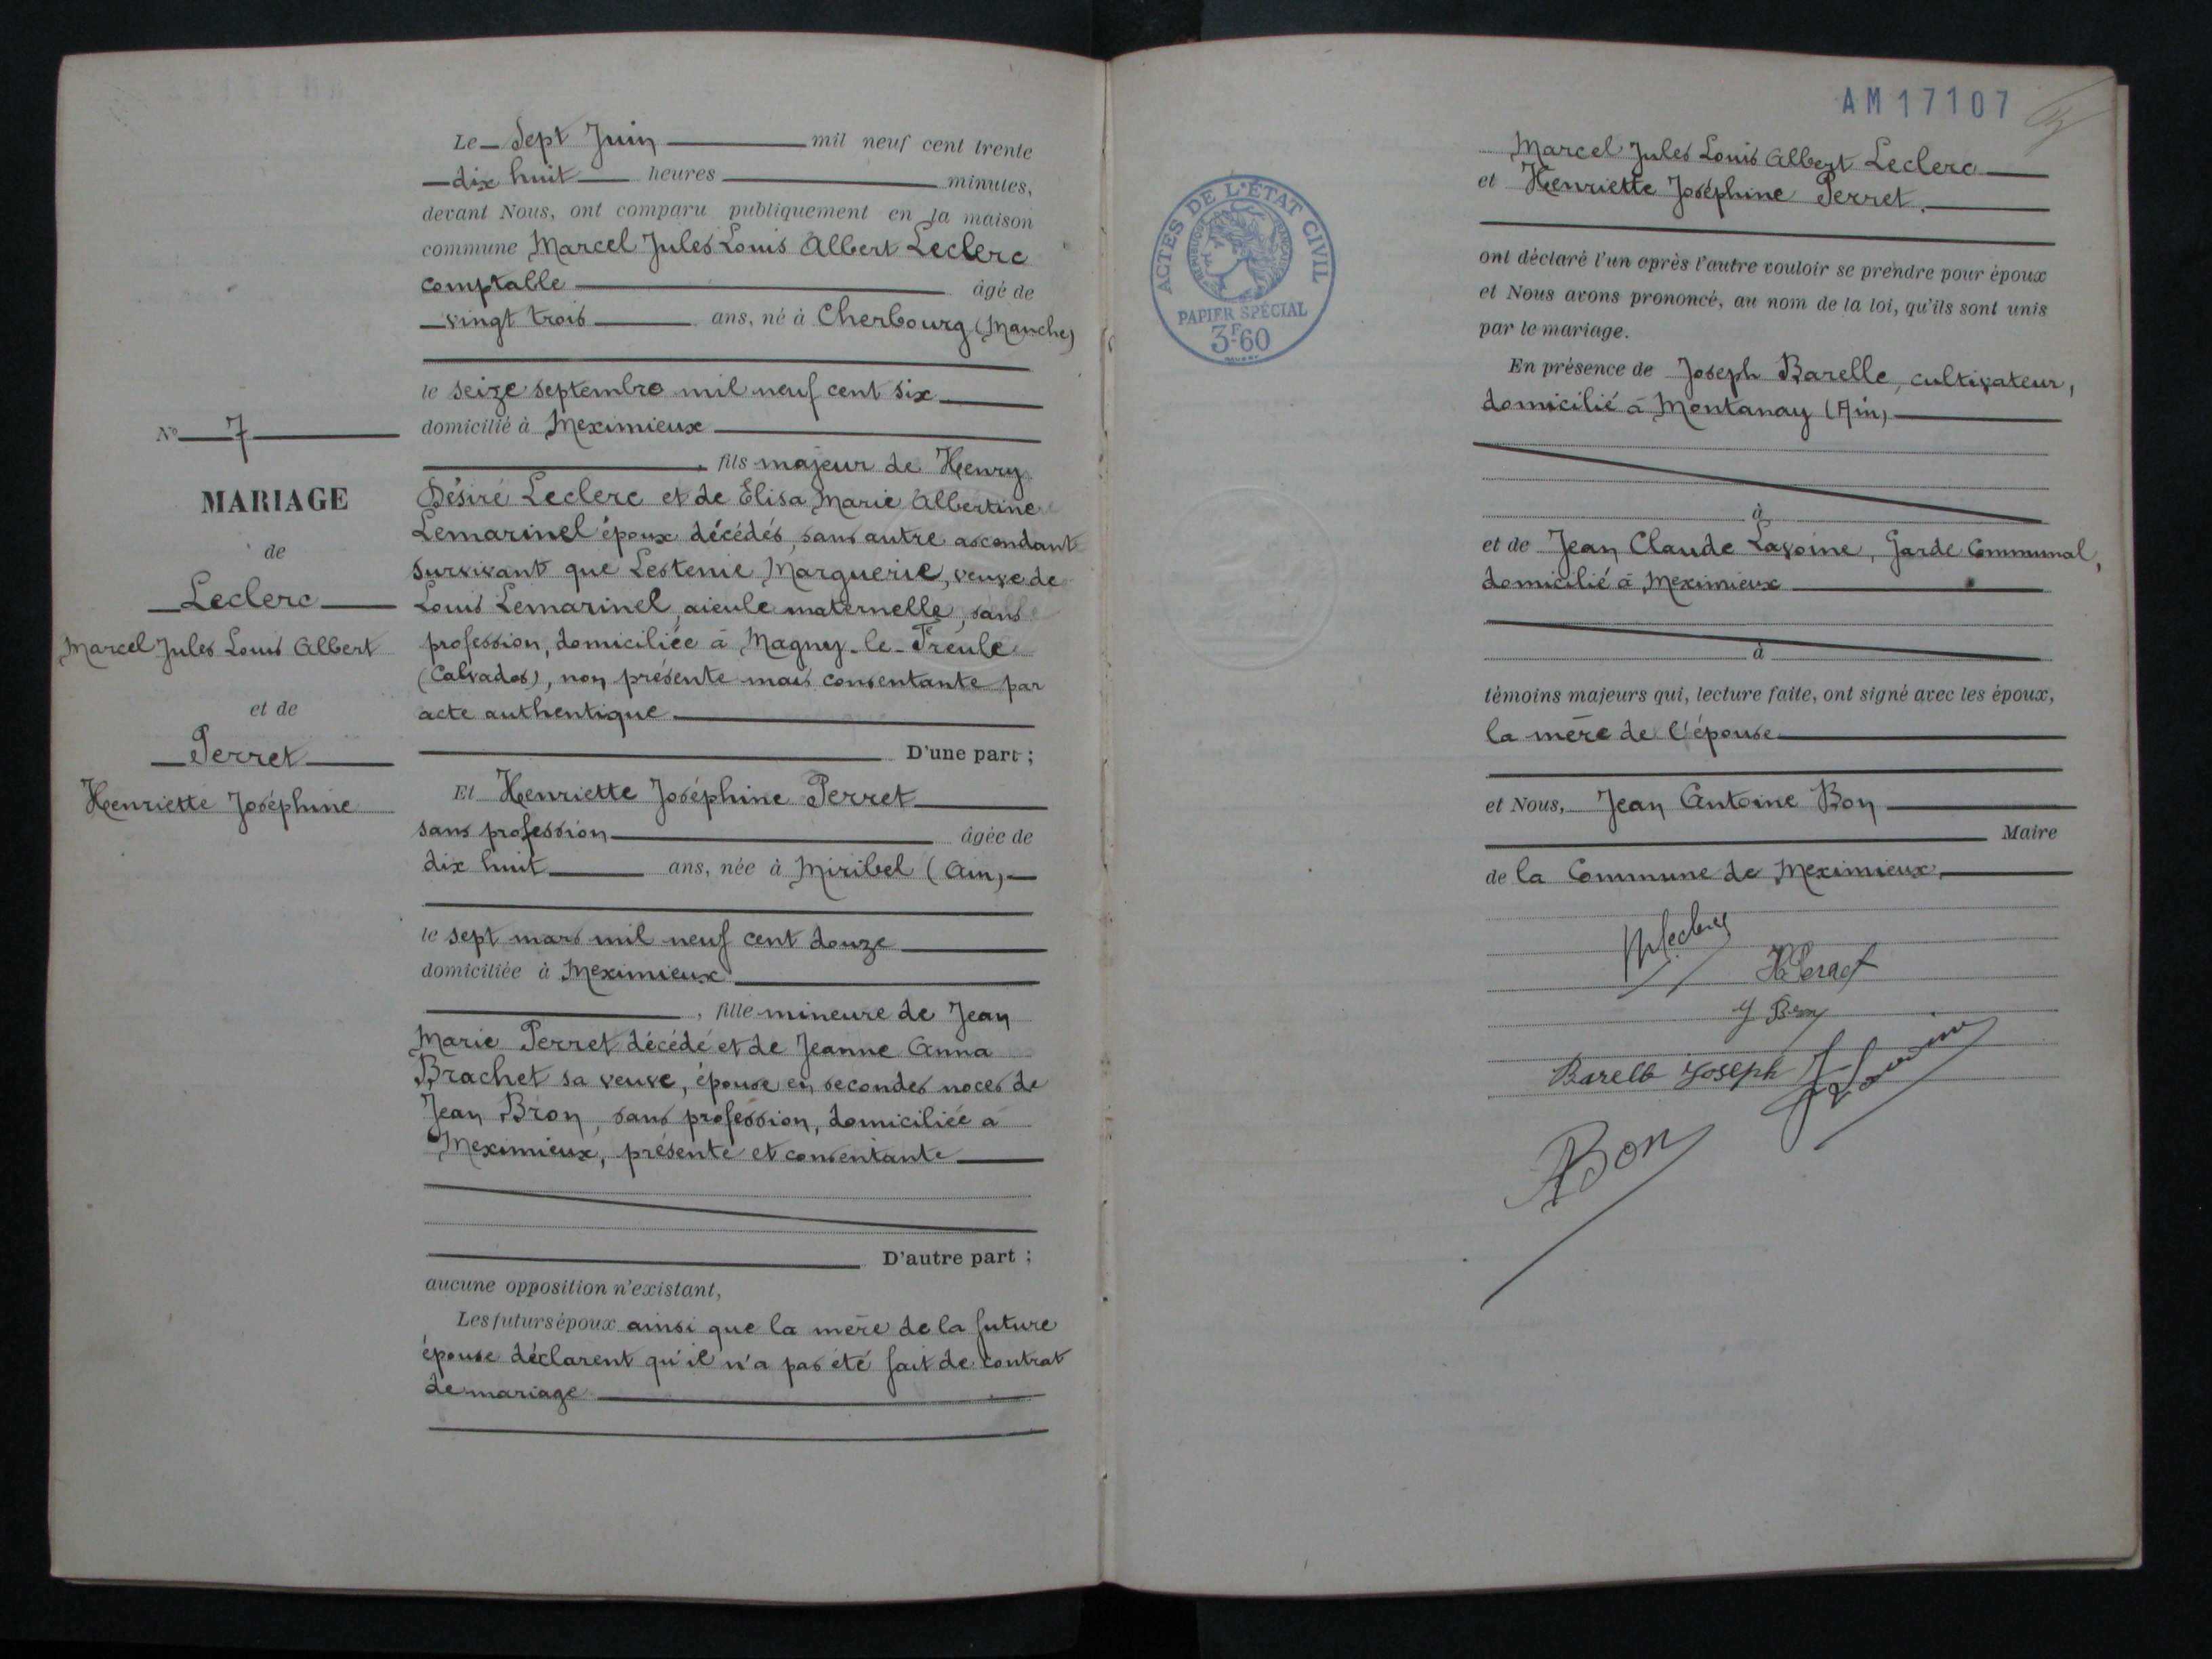 N° 7
MARIAGE
de
Leclerc
Marcel Jules Louis Albert
et de
Perret
Henriette Joséphine
Le Sept Juin mil neuf cent trente
dix huit heures minutes,
devant Nous, ont comparu publiquement en la maison
commune Marcel Jules Louis Albert Leclerc
comptable âgé de
vingt trois ans, né à Cherbourg (Manche)
le seize septembre mil neuf cent six
domicilié à Meximieux
, fils majeur de Henry
Désiré Leclerc et de Elisa Marie Albertine
Lemarinel époux décédés, sans autre ascendant
survivant que Lestenie Marguerie, veuve de
Louis Lemarinel, aieule maternelle, sans
profession, domiciliée à Magny-le-Freule
(Calvados), non présente mais consentante par
acte authentique
D'une part ;
Et Henriette Joséphine Perret
sans profession âgée de
dix huit ans, née à Miribel (Ain)
le sept mars mil neuf cent douze
domiciliée à Meximieux
, fille mineure de Jean
Marie Perret décédé et de Jeanne Anna
Brachet sa veuve, épouse en secondes noces de
Jean Bron, sans profession, domiciliée à
Meximieux, présente et consentante
D'autre part ;
aucune opposition n'existant,
Les futurs époux ainsi que la mère de la future
épouse déclarent qu'il n'a pas été fait de contrat
de mariage
AM 17107
ACTES DE L'ÉTAT CIVIL
RÉPUBLIQUE FRANÇAISE
PAPIER SPÉCIAL
3F60
Marcel Jules Louis Albert Leclerc
et Henriette Joséphine Perret.
ont déclaré l'un après l'autre vouloir se prendre pour époux
et Nous avons prononcé, au nom de la loi, qu'ils sont unis
par le mariage.
En présence de Joseph Barelle, cultivateur,
domicilié à Montanay (Ain)
à
et de Jean Claude Lavoine, Garde Communal,
domicilié à Meximieux
à
témoins majeurs qui, lecture faite, ont signé avec les époux,
la mère de l'épouse
et Nous, Jean Antoine Bon
Maire
de la Commune de Meximieux.
MLeclerc
H Perret
J Bron
Barelle Joseph
JLavoine
ABon